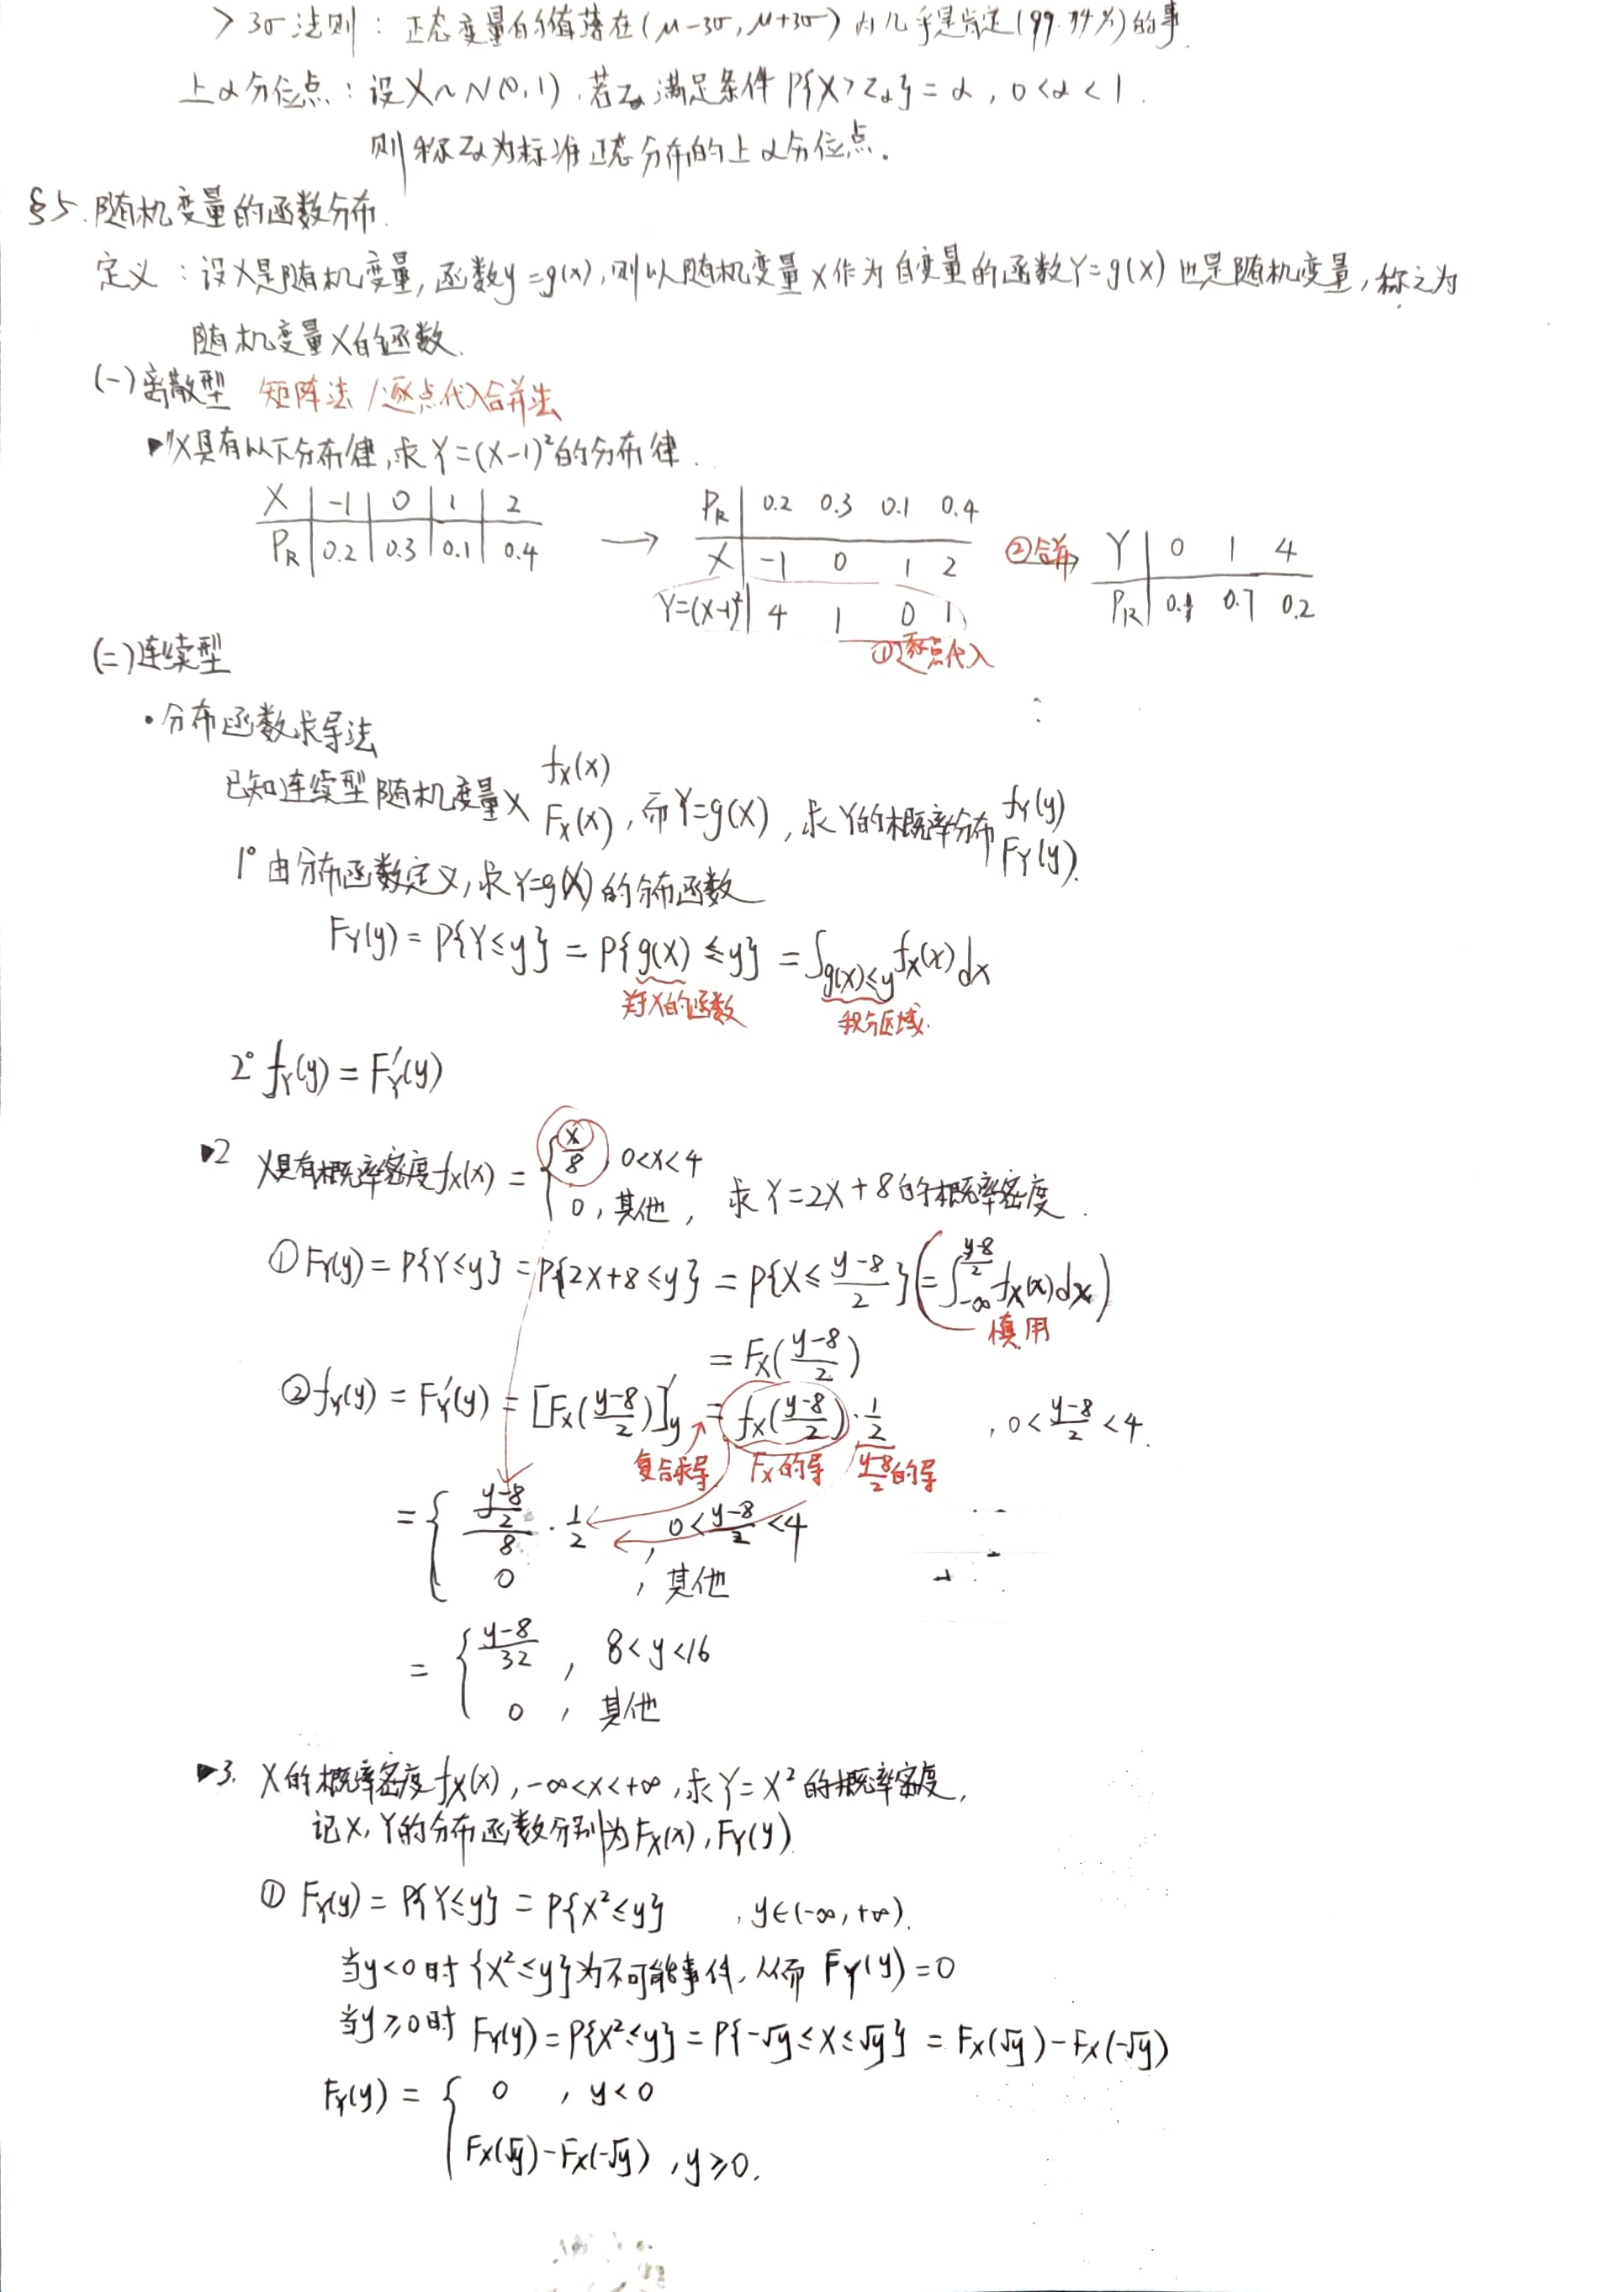 > 3σ法则：正态变量的值落在(μ-3σ, μ+3σ)内几乎是肯定(99.74%)的事.
上α分位点：设X~N(0,1).若Zα满足条件 P{X>Zα}=α, 0<α<1.
则称Zα为标准正态分布的上α分位点.
§5.随机变量的函数分布.
定义：设X是随机变量,函数y=g(x),则以随机变量X作为自变量的函数Y=g(X)也是随机变量,称之为
随机变量X的函数.
(一)离散型 矩阵法/逐点代入合并法
▶1 X具有以下分布律,求Y=(X-1)²的分布律.
X | -1 | 0 | 1 | 2
P_k | 0.2 | 0.3 | 0.1 | 0.4
→
P_k | 0.2 0.3 0.1 0.4
X | -1 0 1 2
Y=(X-1)² | 4 1 0 1
①逐点代入
②合并→
Y | 0 1 4
P_k | 0.1 0.7 0.2
(二)连续型
•分布函数求导法
已知连续型随机变量X f_X(x) F_X(x),而Y=g(X),求Y的概率分布f_Y(y) F_Y(y).
1° 由分布函数定义,求Y=g(X)的分布函数
F_Y(y)=P{Y≤y}=P{g(X)≤y}=∫_{g(x)≤y}f_X(x)dx
关于X的函数 积分区域.
2° f_Y(y)=F_Y'(y)
▶2 X具有概率密度f_X(x)={x/8, 0<x<4
0,其他, 求Y=2X+8的概率密度.
①F_Y(y)=P{Y≤y}=P{2X+8≤y}=P{X≤(y-8)/2}(=∫_{-∞}^{(y-8)/2}f_X(x)dx)
慎用
=F_X((y-8)/2)
②f_Y(y)=F_Y'(y)=[F_X((y-8)/2)]'_y=f_X((y-8)/2)·1/2 , 0<(y-8)/2<4.
复合求导 F_X的导 (y-8)/2的导
={((y-8)/2)/8·1/2, 0<(y-8)/2<4
0 ,其他
={(y-8)/32, 8<y<16
0 ,其他
▶3. X的概率密度f_X(x),-∞<x<+∞,求Y=X²的概率密度,
记X,Y的分布函数分别为F_X(x),F_Y(y).
① F_Y(y)=P{Y≤y}=P{X²≤y} ,y∈(-∞,+∞).
当y<0时{X²≤y}为不可能事件,从而 F_Y(y)=0
当y≥0时 F_Y(y)=P{X²≤y}=P{-√y≤X≤√y}=F_X(√y)-F_X(-√y)
F_Y(y)={0 , y<0
F_X(√y)-F_X(-√y) ,y≥0.